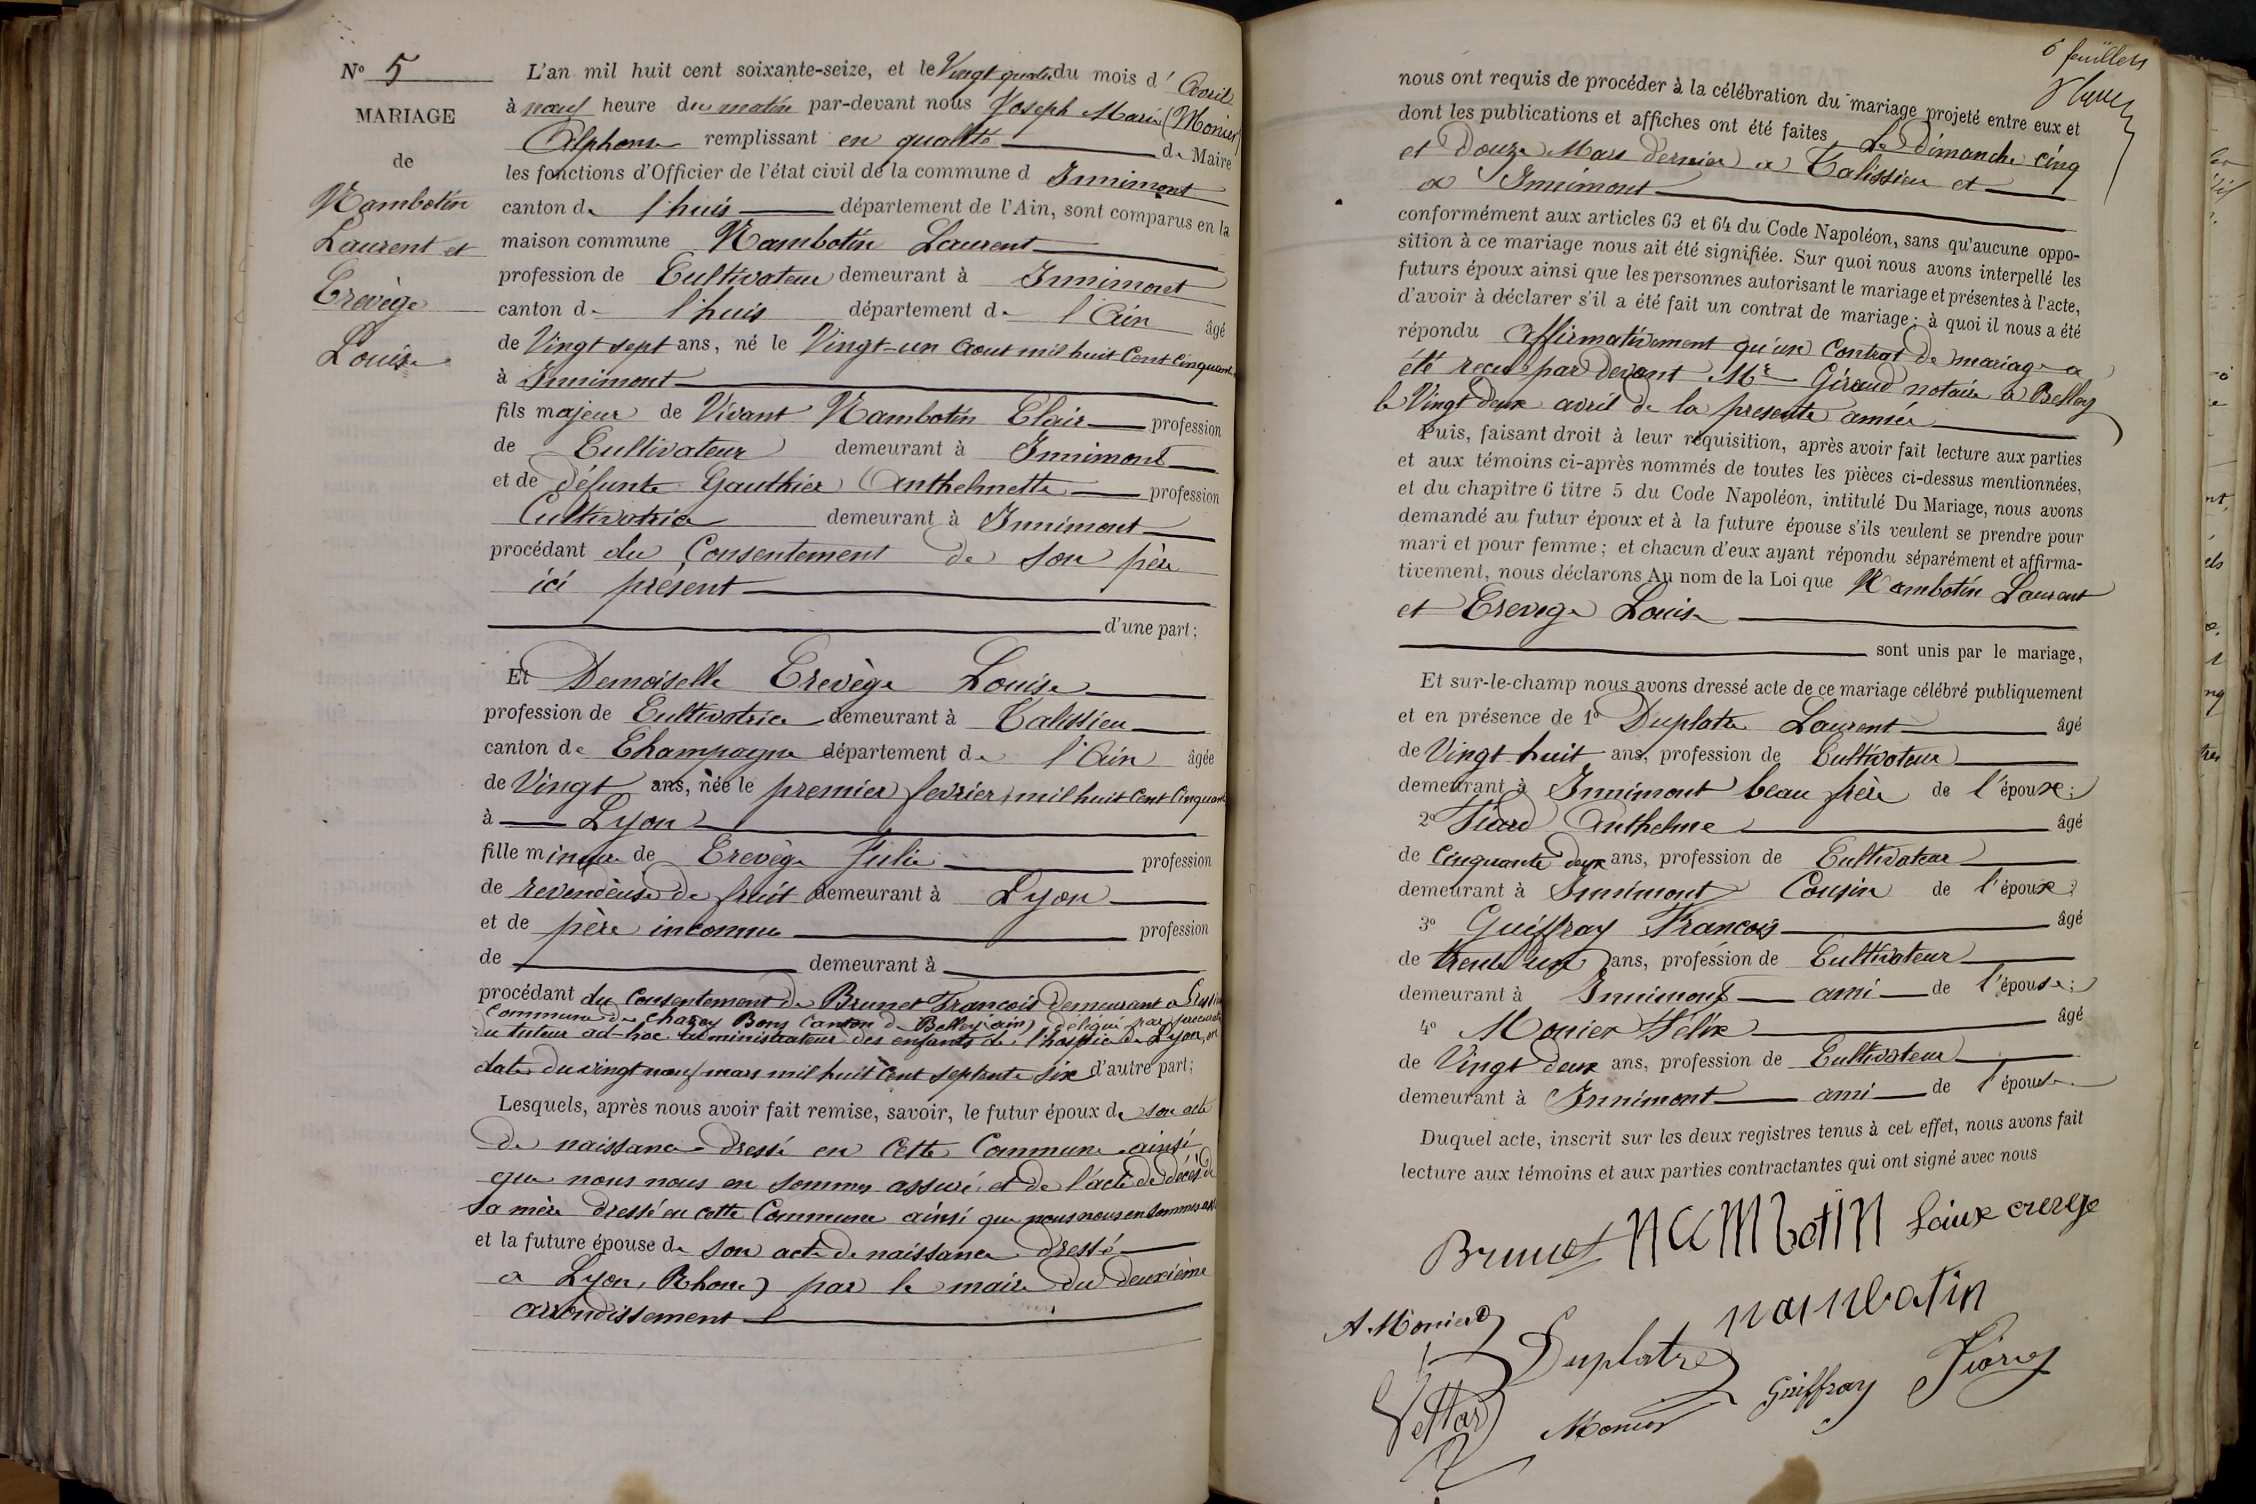 N° 5
MARIAGE
de
Nambotin
Laurent et
Crevège
Louise
L'an mil huit cent soixante-seize, et le Vingt quatre du mois d' Avril
à neuf heure du matin par-devant nous Joseph Marie (Monier)
Alphonse remplissant en qualité de Maire
les fonctions d'Officier de l'état civil de la commune d Innimont
canton de l'huis département de l'Ain, sont comparus en la
maison commune Nambotin Laurent
profession de Cultivateur demeurant à Innimont
canton de l'huis département de l'Ain âgé
de Vingt sept ans, né le Vingt-un Aout mil huit Cent Cinquante
à Innimont
fils majeur de Vivant Nambotin Clair profession
de Cultivateur demeurant à Innimont
et de défunte Gauthier Anthelmette profession
Cultivatrice demeurant à Innimont
procédant du Consentement de son père
ici présent
d'une part;
Et Demoiselle Crevège Louise
profession de Cultivatrice demeurant à Talissieu
canton de Champagne département de l'Ain âgée
de Vingt ans, née le premier fevrier mil huit Cent Cinquante
à Lyon
fille mineure de Crevège Julie profession
de revendeuse de fruit demeurant à Lyon
et de père inconnu profession
de demeurant à
procédant du Consentement de Brunet François demeurant a
Commune de Chazey Bons Canton de Belley (ain) délégué par
du tuteur ad-hoc administrateur des enfants de l'hospice de Lyon, en
date du vingt neuf mars mil huit Cent septante six d'autre part;
Lesquels, après nous avoir fait remise, savoir, le futur époux de son acte
de naissance dressé en Cette Commune ainsi
que nous nous en sommes assuré et de l'acte de décès de
sa mère dressé en cette Commune ainsi que nous nous en sommes
et la future épouse de son acte de naissance dressé
a Lyon, Rhone) par le maire du deuxième
arrondissement
6 feuillets
nous ont requis de procéder à la célébration du mariage projeté entre eux et
dont les publications et affiches ont été faites Le dimanche cinq
et Douze Mars dernier a Talissieu et
a Innimont
conformément aux articles 63 et 64 du Code Napoléon, sans qu'aucune oppo-
sition à ce mariage nous ait été signifiée. Sur quoi nous avons interpellé les
futurs époux ainsi que les personnes autorisant le mariage et présentes à l'acte,
d'avoir à déclarer s'il a été fait un contrat de mariage; à quoi il nous a été
répondu affirmativement qu'un Contrat de mariage a
été recu par devant Mr Giraud notaire a Belley
le Vingt deux avril de la presente année
Puis, faisant droit à leur réquisition, après avoir fait lecture aux parties
et aux témoins ci-après nommés de toutes les pièces ci-dessus mentionnées,
et du chapitre 6 titre 5 du Code Napoléon, intitulé Du Mariage, nous avons
demandé au futur époux et à la future épouse s'ils veulent se prendre pour
mari et pour femme; et chacun d'eux ayant répondu séparément et affirma-
tivement, nous déclarons Au nom de la Loi que Nambotin Laurent
et Crevege Louise
sont unis par le mariage,
Et sur-le-champ nous avons dressé acte de ce mariage célébré publiquement
et en présence de 1° Duplatre Laurent âgé
de Vingt huit ans, profession de Cultivateur
demeurant à Innimont beau frère de l'époux;
2° Tiard Anthelme âgé
de Cinquante deux ans, profession de Cultivateur
demeurant à Innimont Cousin de l'époux;
3° Guiffray François âgé
de trente un ans, profession de Cultivateur
demeurant à Innimont ami de l'épouse;
4° Monier Félix âgé
de Vingt deux ans, profession de Cultivateur
demeurant à Innimont ami de l'épouse
Duquel acte, inscrit sur les deux registres tenus à cet effet, nous avons fait
lecture aux témoins et aux parties contractantes qui ont signé avec nous
Brunet nambotin Louise crevege
nambotin
A. Monier
Duplatre
Guiffray Tiard
Monier